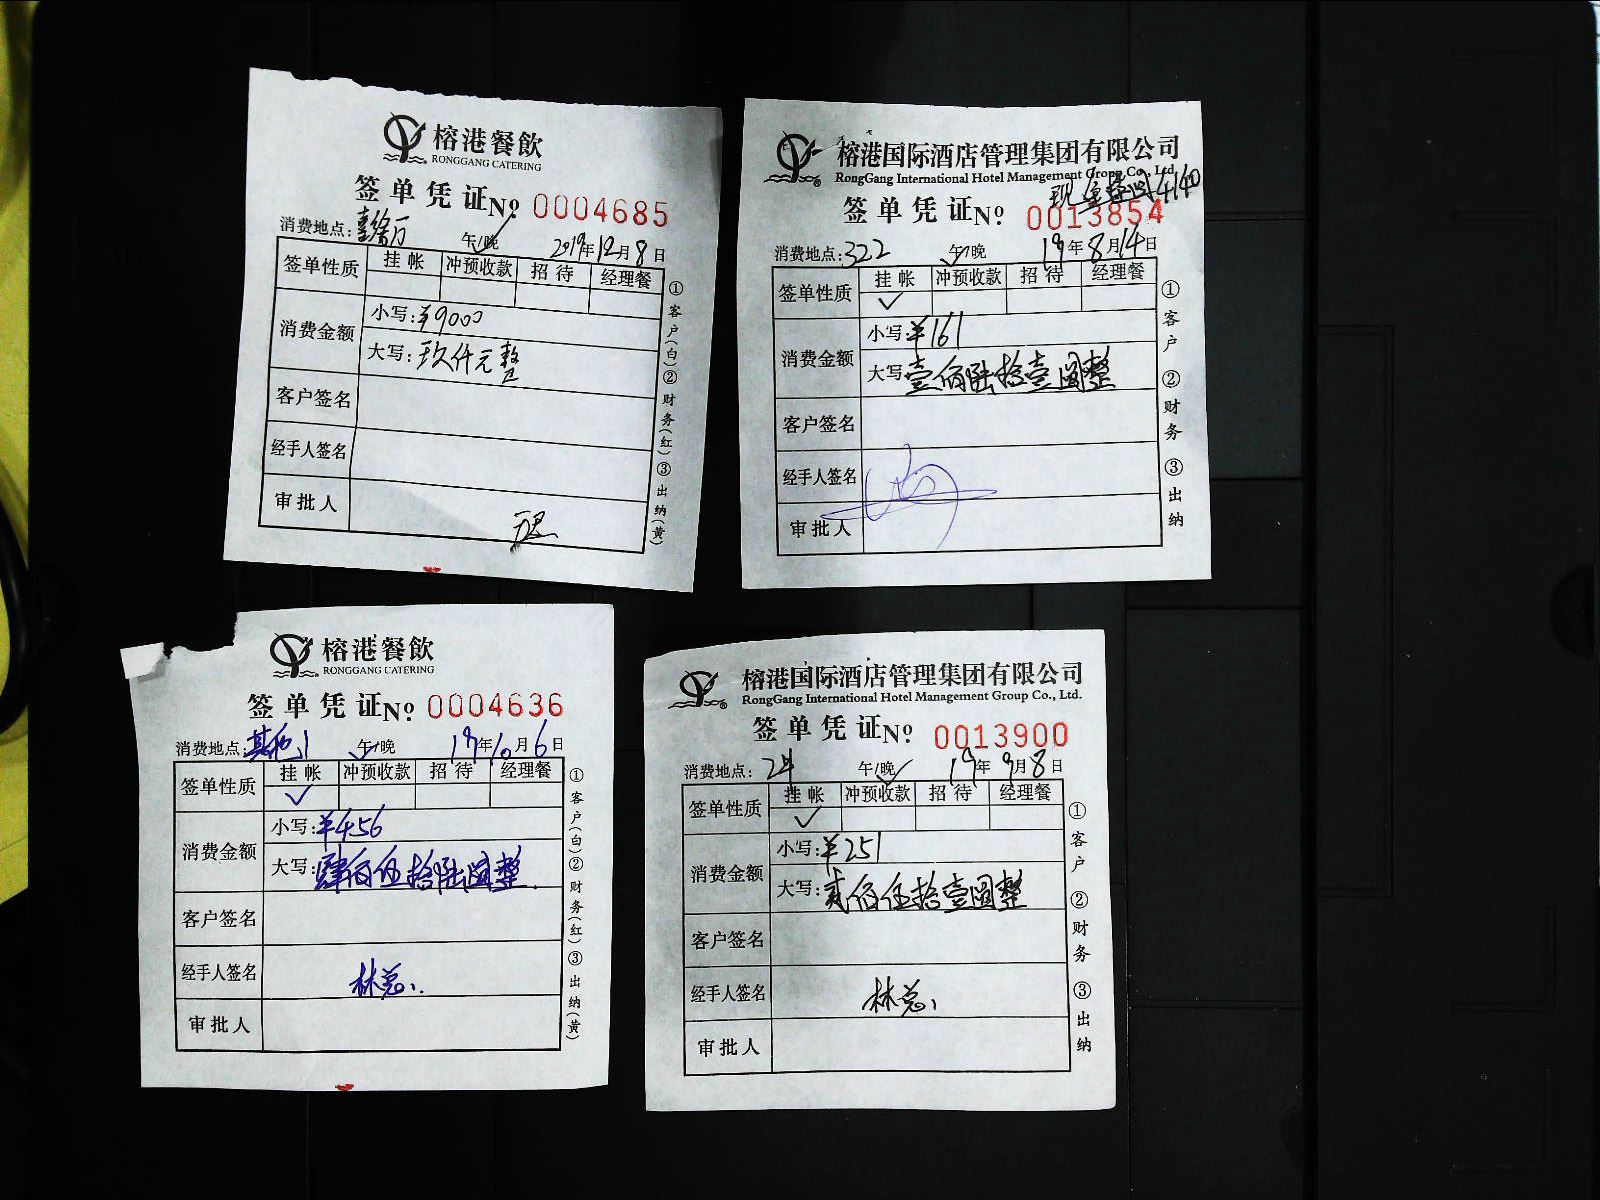 榕港餐飲
RONGGANG CATERING
签单凭证 Nº 0004685
消费地点: 午/晚 2019年12月8日
签单性质 挂帐 冲预收款 招待 经理餐
消费金额 小写:¥9000
大写:玖仟元整
客户签名
经手人签名
审批人
①客户(白)②财务(红)③出纳(黄)
榕港国际酒店管理集团有限公司
RongGang International Hotel Management Group Co., Ltd.
4140
签单凭证 Nº 0013854
消费地点:322 午/晚 19年8月14日
签单性质 挂帐 冲预收款 招待 经理餐
✓
消费金额 小写:¥161
大写:壹佰陆拾壹圆整
客户签名
经手人签名
审批人
①客户 ②财务 ③出纳
榕港餐飲
RONGGANG CATERING
签单凭证 Nº 0004636
消费地点:其他1 午/晚 19年10月6日
签单性质 挂帐 冲预收款 招待 经理餐
✓
消费金额 小写:¥456
大写:肆佰伍拾陆圆整
客户签名
经手人签名 林总
审批人
①客户(白)②财务(红)③出纳(黄)
榕港国际酒店管理集团有限公司
RongGang International Hotel Management Group Co., Ltd.
签单凭证 Nº 0013900
消费地点: 午/晚 19年9月8日
签单性质 挂帐 冲预收款 招待 经理餐
✓
消费金额 小写:¥251
大写:贰佰伍拾壹圆整
客户签名
经手人签名 林总
审批人
①客户 ②财务 ③出纳